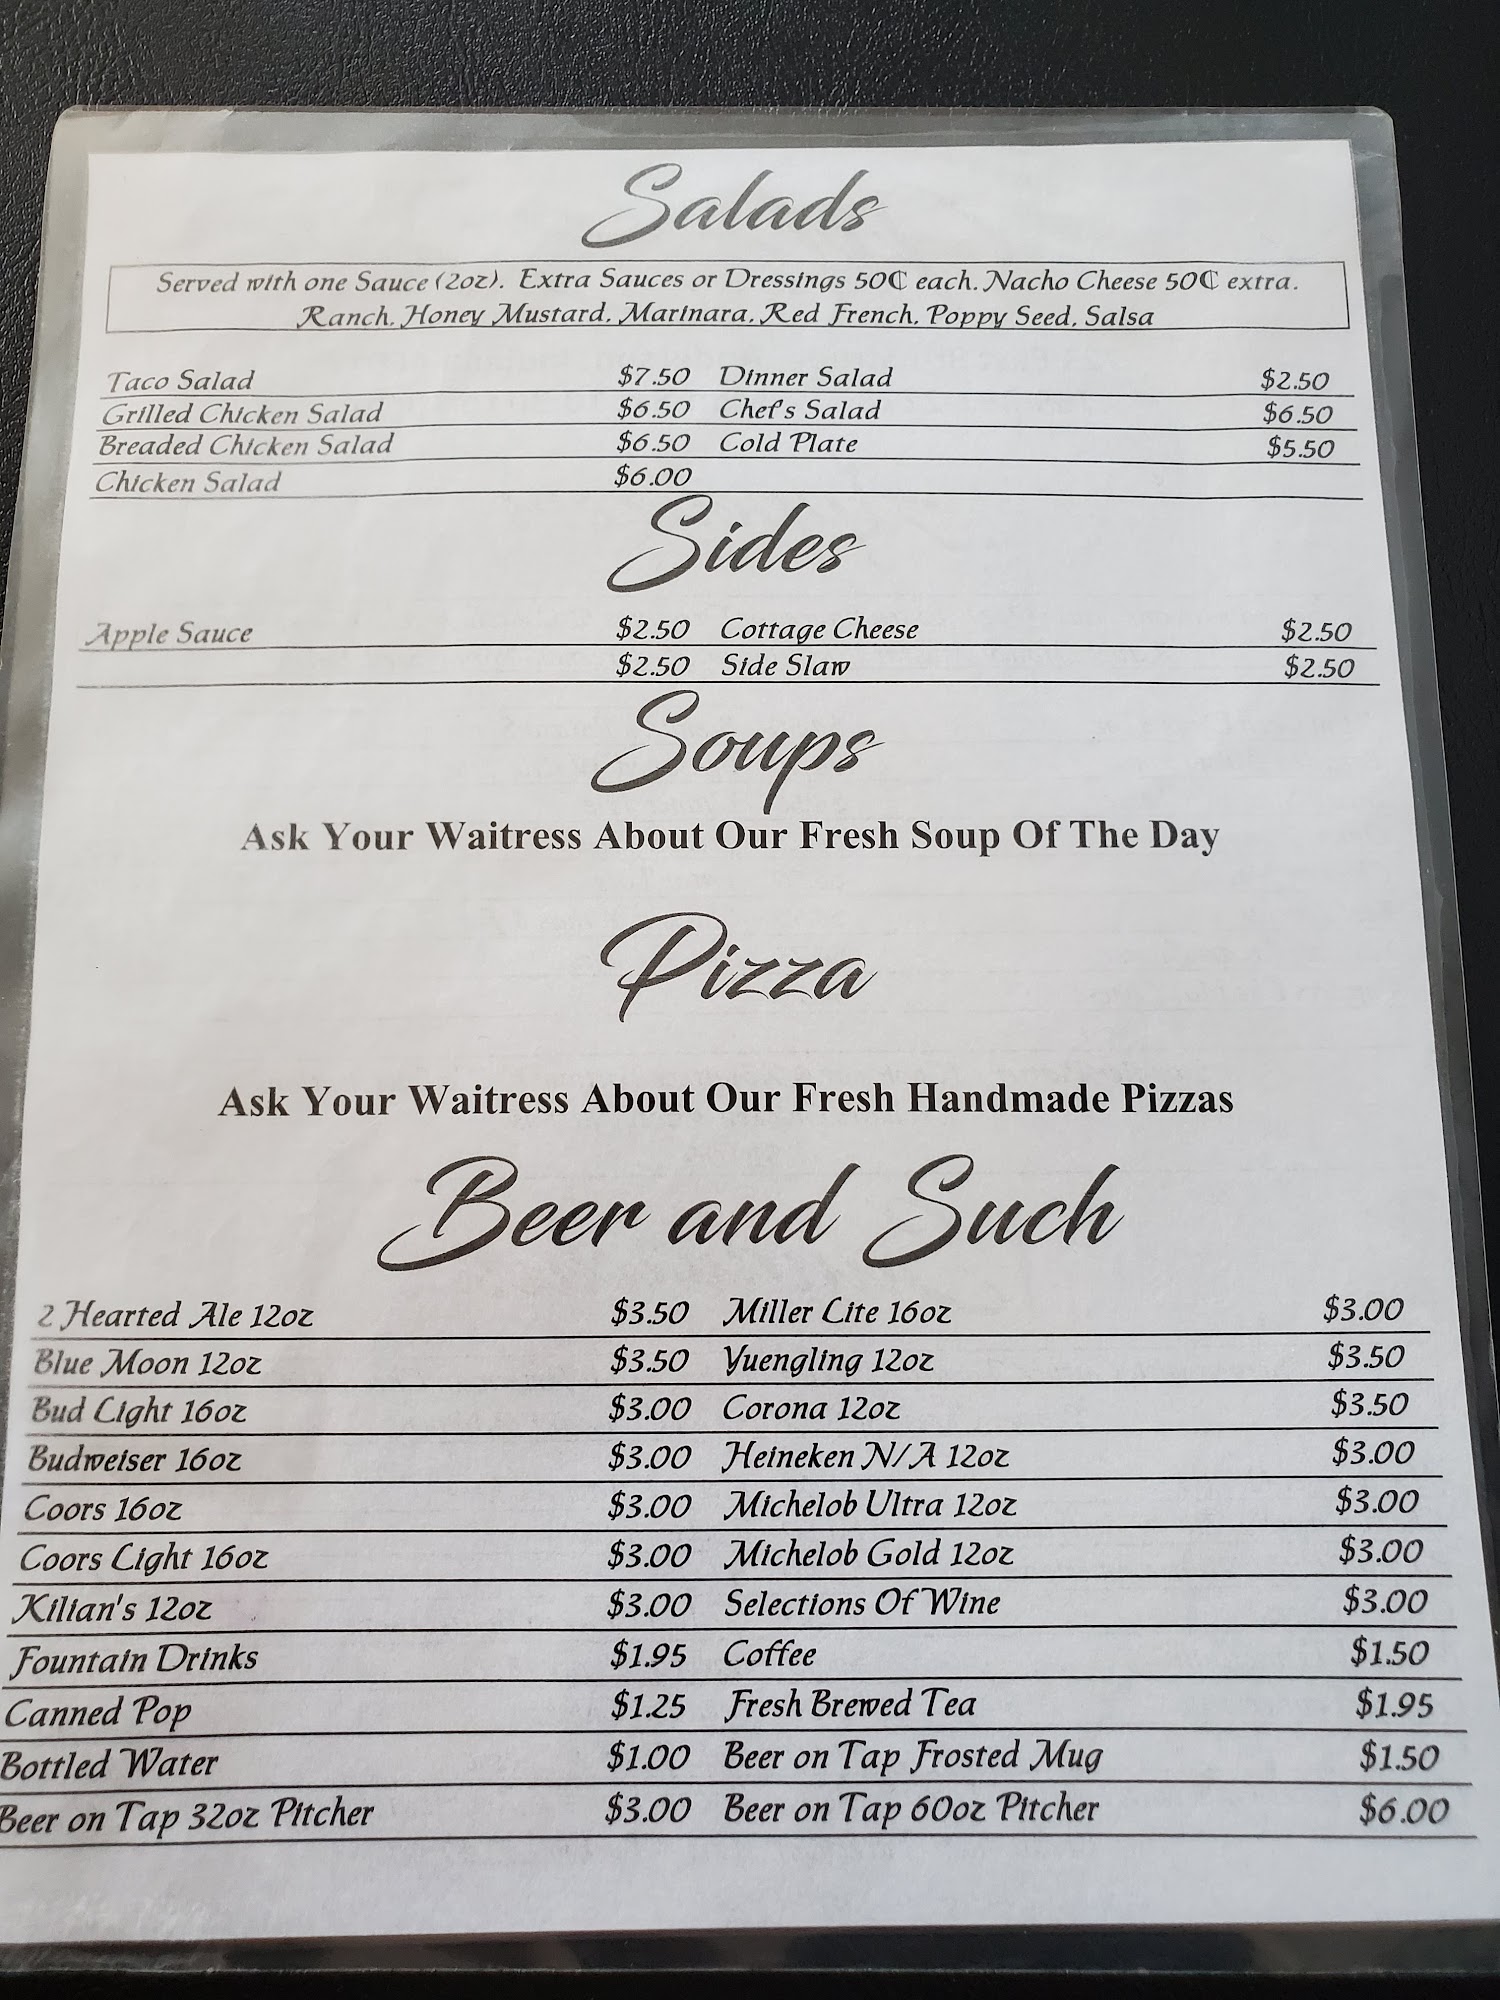 Salads
Served with one Sauce (2oz). Extra Sauces or Dressings 50₵ each. Nacho Cheese 50₵ extra.
Ranch, Honey Mustard, Marinara, Red French, Poppy Seed, Salsa
Taco Salad $7.50 Dinner Salad $2.50
Grilled Chicken Salad $6.50 Chef's Salad $6.50
Breaded Chicken Salad $6.50 Cold Plate $5.50
Chicken Salad $6.00
Sides
Apple Sauce $2.50 Cottage Cheese $2.50
$2.50 Side Slaw $2.50
Soups
Ask Your Waitress About Our Fresh Soup Of The Day
Pizza
Ask Your Waitress About Our Fresh Handmade Pizzas
Beer and Such
2 Hearted Ale 12oz $3.50 Miller Lite 16oz $3.00
Blue Moon 12oz $3.50 Yuengling 12oz $3.50
Bud Light 16oz $3.00 Corona 12oz $3.50
Budweiser 16oz $3.00 Heineken N/A 12oz $3.00
Coors 16oz $3.00 Michelob Ultra 12oz $3.00
Coors Light 16oz $3.00 Michelob Gold 12oz $3.00
Kilian's 12oz $3.00 Selections Of Wine $3.00
Fountain Drinks $1.95 Coffee $1.50
Canned Pop $1.25 Fresh Brewed Tea $1.95
Bottled Water $1.00 Beer on Tap Frosted Mug $1.50
Beer on Tap 32oz Pitcher $3.00 Beer on Tap 60oz Pitcher $6.00